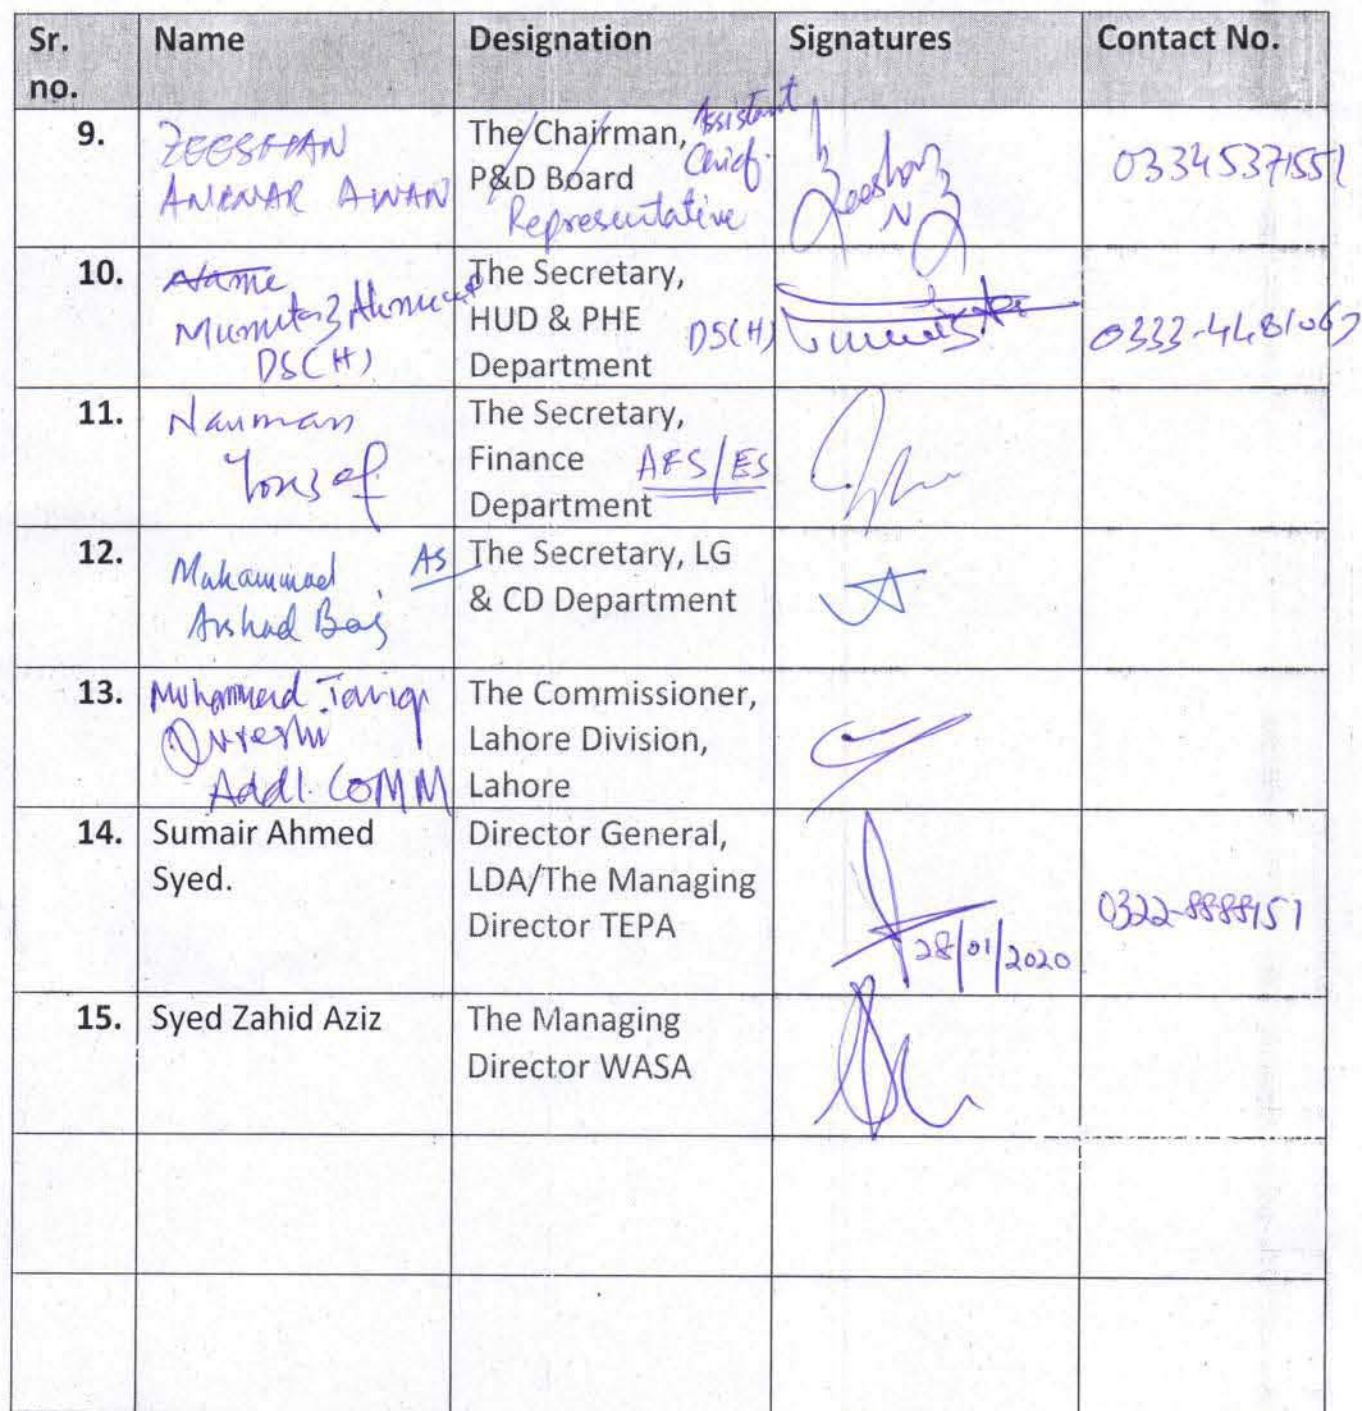 Sr. no. Name Designation Signatures Contact No.
9.
ZEESHAN
ANWAR AWAN
The Chairman, Assistant
P&D Board Chief
Representative
Zeeshan
03345371551
10.
Name
Mumtaz Ahmed
DS(H)
The Secretary,
HUD & PHE
Department
DS(H)
0333-4481067
11.
Nauman
Yousaf
The Secretary,
Finance
Department
AFS/ES
12.
Muhammad
Arshad Baig
AS
The Secretary, LG
& CD Department
13.
Mohammad Tariq
Qureshi
Addl. COMM
The Commissioner,
Lahore Division,
Lahore
14.
Sumair Ahmed
Syed.
Director General,
LDA/The Managing
Director TEPA
28/01/2020
0322-8888151
15.
Syed Zahid Aziz
The Managing
Director WASA